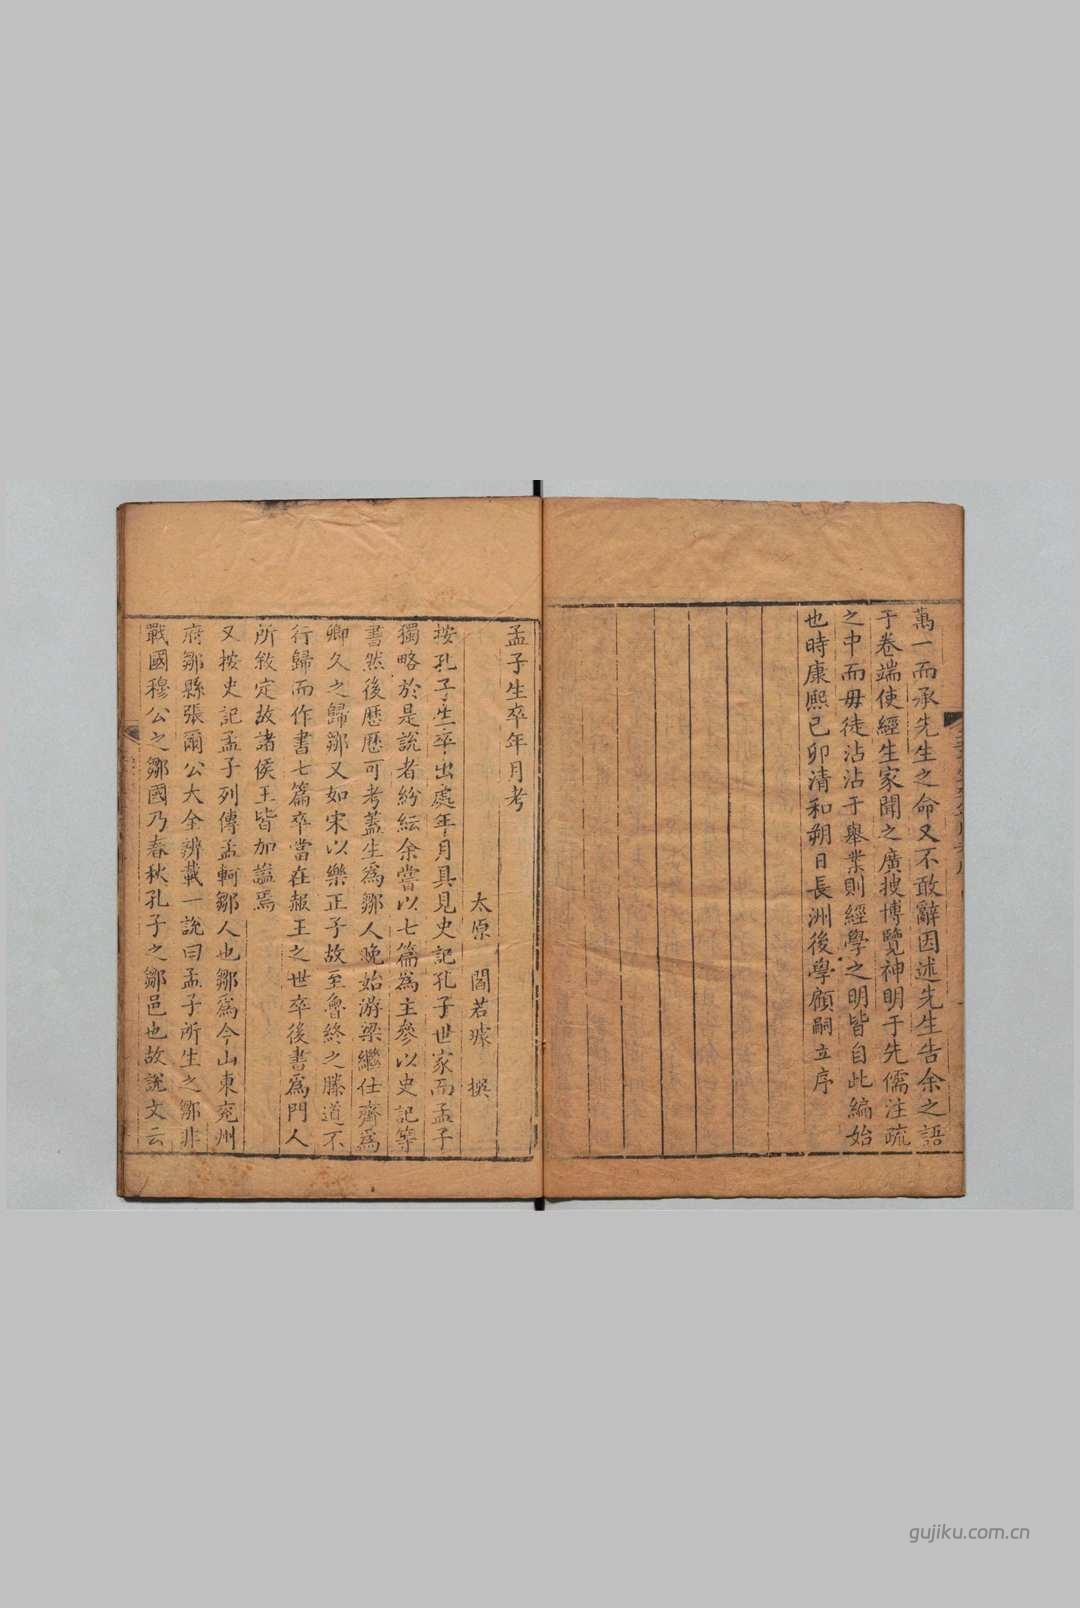 萬一而承先生之命又不敢辭因述先生告余之語
于卷端使經生家聞之廣搜博覽神明于先儒注疏
之中而毋徒沾沾于舉業則經學之明皆自此編始
也時康熙己卯清和朔日長洲後學顧嗣立序
孟子生卒年月考
太原 閻若璩 撰
按孔子生卒出處年月具見史記孔子世家而孟子
獨略於是說者紛紜余嘗以七篇為主參以史記等
書然後歷歷可考蓋生爲鄒人晚始游梁繼仕齊爲
卿久之歸鄒又如宋以樂正子故至魯終之滕道不
行歸而作書七篇卒當在赧王之世卒後書爲門人
所敘定故諸侯王皆加謚焉
又按史記孟子列傳孟軻鄒人也鄒爲今山東兖州
府鄒縣張爾公大全辨載一說曰孟子所生之鄒非
戰國穆公之鄒國乃春秋孔子之鄒邑也故說文云
gujiku.com.cn